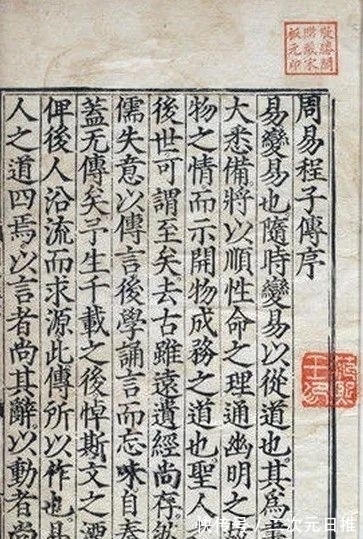 周易程子傳序
易變易也隨時變易以從道也其爲
大悉備將以順性命之理通幽明之
物之情而示開物成務之道也聖人
後世可謂至矣去古雖遠遺經尚存然
儒失意以傳言後學誦言而忘味自秦
蓋无傳矣予生千載之後悼斯文之湮
俾後人沿流而求源此傳所以作也易
人之道四焉以言者尚其辭以動者尚
快传号/二次元日推